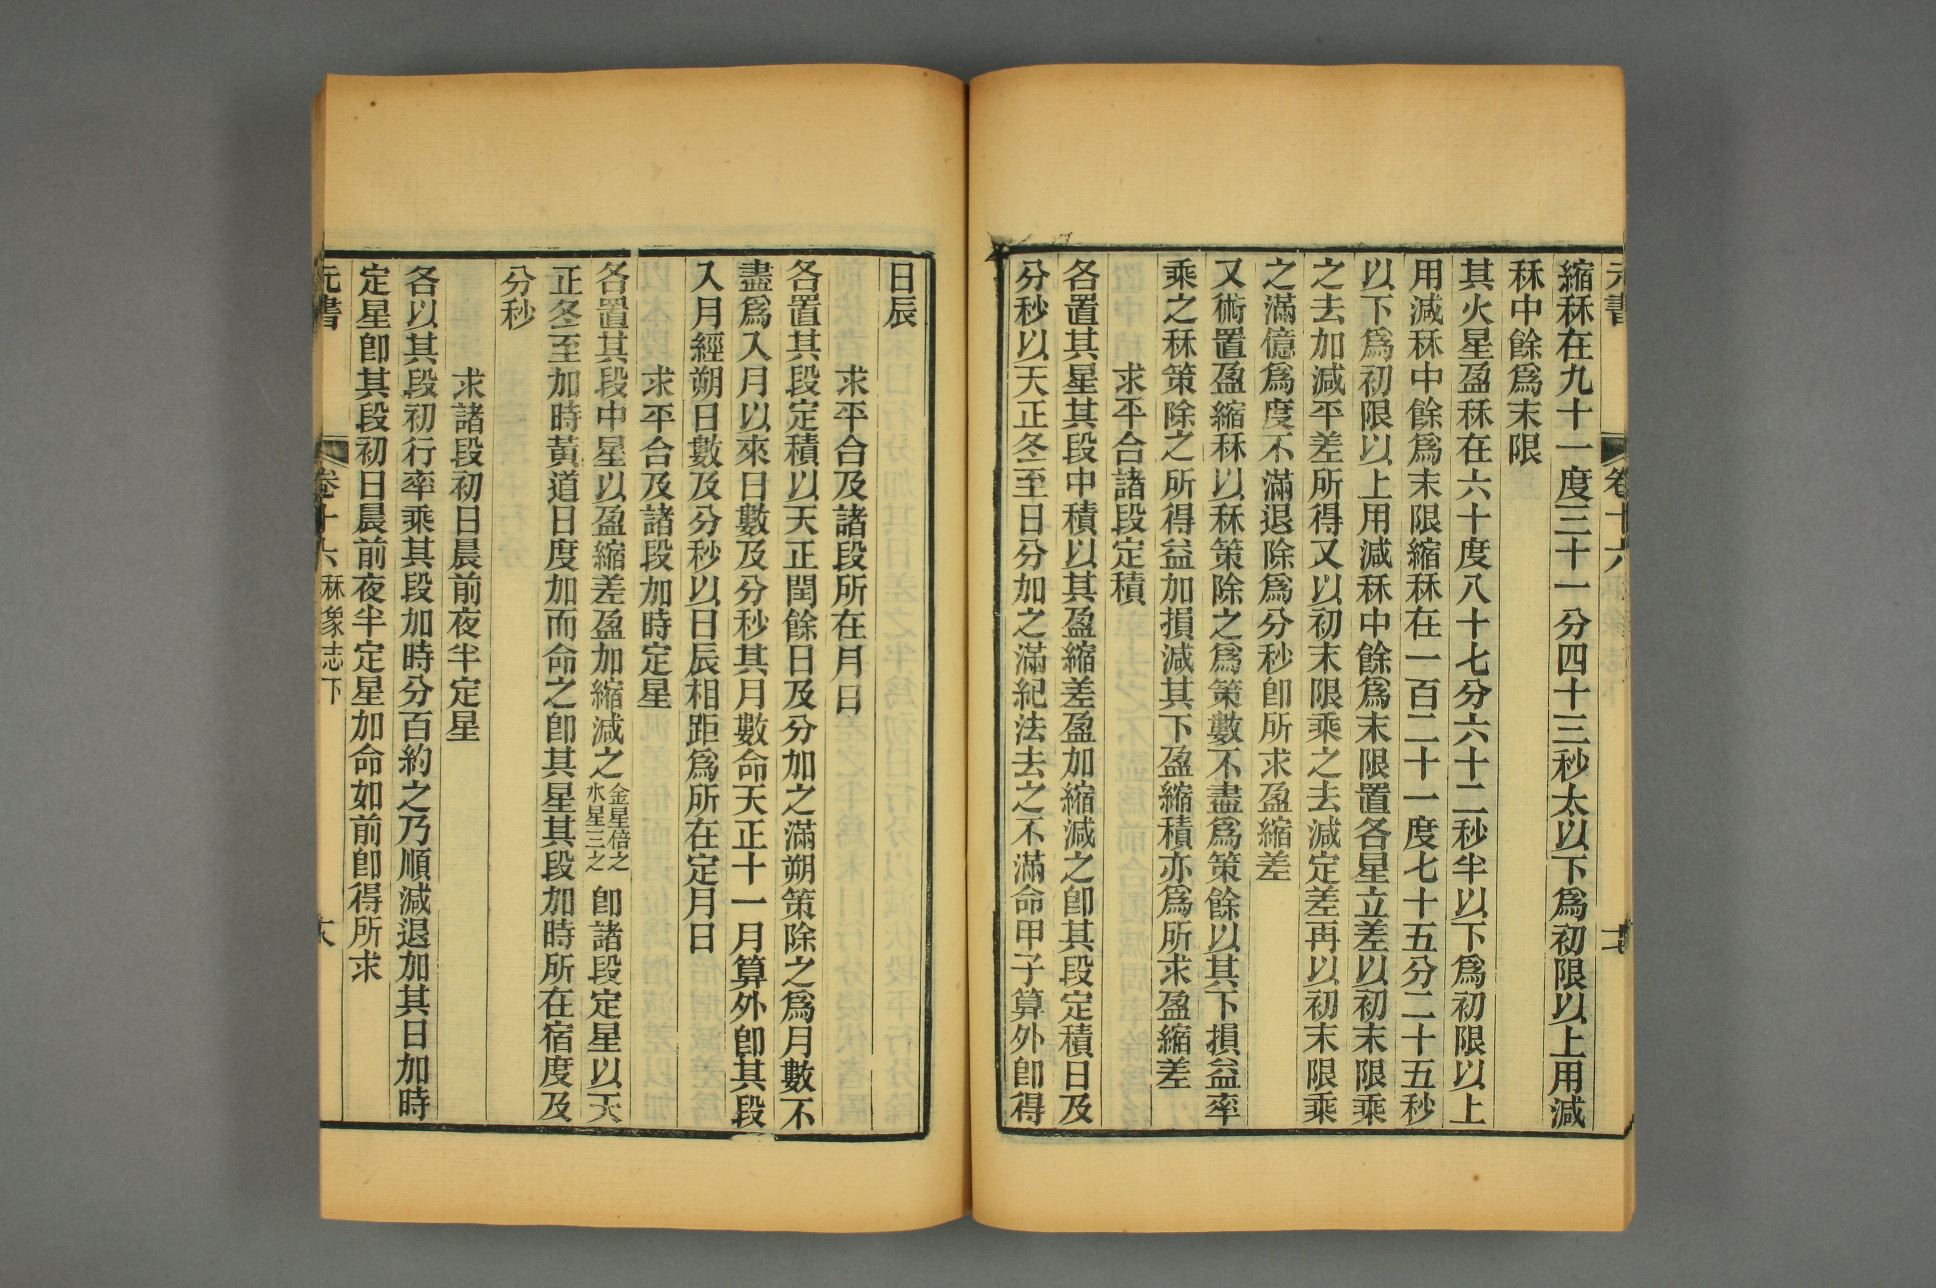 元書 卷十六 十七
縮秝在九十一度三十一分四十三秒太以下爲初限以上用減
秝中餘爲末限
其火星盈秝在六十度八十七分六十二秒半以下爲初限以上
用減秝中餘爲末限縮秝在一百二十一度七十五分二十五秒
以下爲初限以上用減秝中餘爲末限置各星立差以初末限乘
之去加減平差所得又以初末限乘之去減定差再以初末限乘
之滿億爲度不滿退除爲分秒卽所求盈縮差
又術置盈縮秝以秝策除之爲策數不盡爲策餘以其下損益率
乘之秝策除之所得益加損減其下盈縮積亦爲所求盈縮差
求平合諸段定積
各置其星其段中積以其盈縮差盈加縮減之卽其段定積日及
分秒以天正冬至日分加之滿紀法去之不滿命甲子算外卽得
日辰
求平合及諸段所在月日
各置其段定積以天正閏餘日及分加之滿朔策除之爲月數不
盡爲入月以來日數及分秒其月數命天正十一月算外卽其段
入月經朔日數及分秒以日辰相距爲所在定月日
求平合及諸段加時定星
各置其段中星以盈縮差盈加縮減之金星倍之水星三之卽諸段定星以天
正冬至加時黃道日度加而命之卽其星其段加時所在宿度及
分秒
求諸段初日晨前夜半定星
各以其段初行率乘其段加時分百約之乃順減退加其日加時
定星卽其段初日晨前夜半定星加命如前卽得所求
元書 卷十六 秝象志下 十八